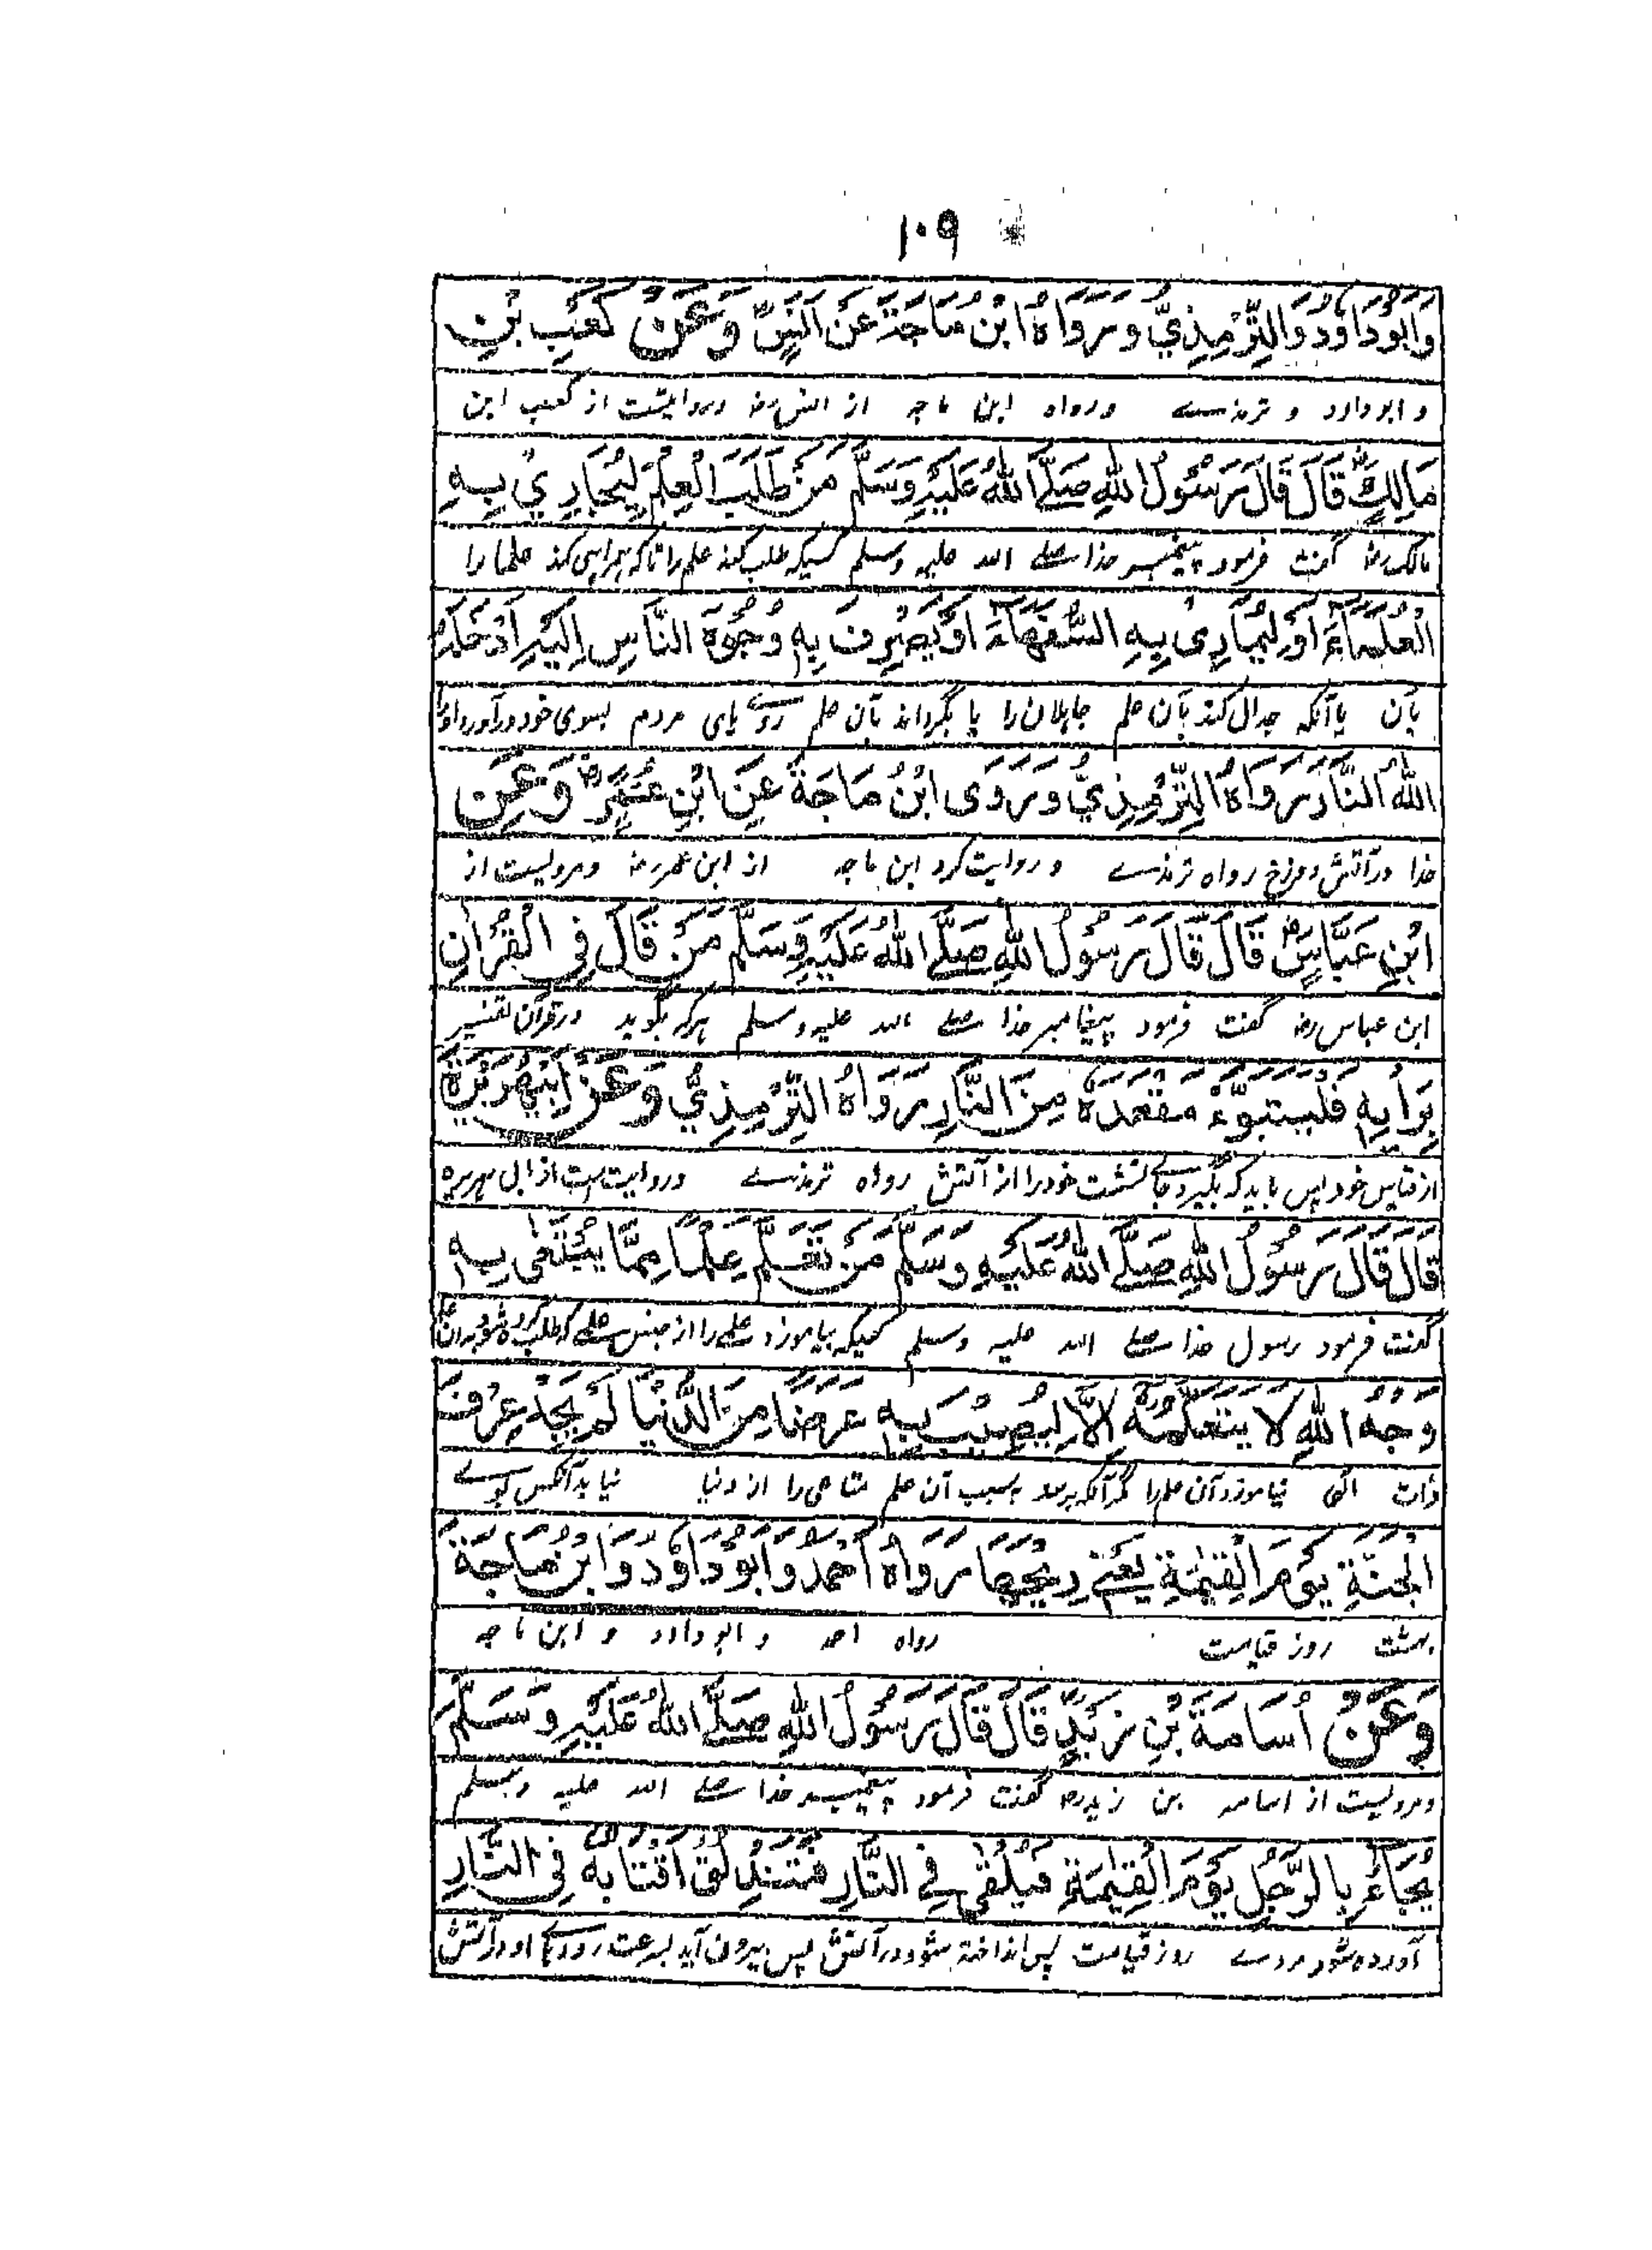 ۱۰۹
وَاَبُوْدَاوٗدَ وَالتِّرْمِذِيُّ وَرَوَاهُ ابْنُ مَاجَةَ عَنْ اَنَسٍؓ وَعَنْ كَعْبِ بْنِ
و ابوداود و ترمذے ورواه ابن ماجہ از انس رضہ ومرویست از کعب ابن
مَالِكٍؓ قَالَ قَالَ رَسُوْلُ اللّٰهِ صَلَّے اللّٰهُ عَلَيْهِ وَسَلَّمَ مَنْ طَلَبَ الْعِلْمَ لِيُجَارِيَ بِهِ
مالک رضہ گفت فرمود پیغمبر خدا صلے اللہ علیہ وسلم کسیکہ طلب کند علم را تاکہ ہمراہی کند علما را
الْعُلَمَاءَ اَوْ لِيُمَارِىَ بِهِ السُّفَهَاءَ اَوْ يَصْرِفَ بِهٖ وُجُوْهَ النَّاسِ اِلَيْهِ اَدْخَلَهُ
بآن یا آنکہ جدال کند بآن علم جاہلان را یا بگرداند بآن علم روے ہای مردم بسوی خود درآورد اورا
اللّٰهُ النَّارَ رَوَاهُ التِّرْمِذِيُّ وَرَوَى ابْنُ مَاجَةَ عَنِ ابْنِ عُمَرَؓ وَعَنِ
خدا در آتش دوزخ رواہ ترمذے و روایت کرد ابن ماجہ از ابن عمر رضہ ومرویست از
ابْنِ عَبَّاسٍؓ قَالَ قَالَ رَسُوْلُ اللّٰهِ صَلَّے اللّٰهُ عَلَيْهِ وَسَلَّمَ مَنْ قَالَ فِى الْقُرْاٰنِ
ابن عباس رضہ گفت فرمود پیغامبر خدا صلے اللہ علیہ وسلم ہرکہ بگوید در قرآن تفسیر
بِرَاْيِهٖ فَلْيَتَبَوَّءْ مَقْعَدَهٗ مِنَ النَّارِ رَوَاهُ التِّرْمِذِيُّ وَعَنْ اَبِيْهُرَيْرَةَ
از قیاس خود پس باید کہ بگیرد جاے نشست خود را از آتش رواہ ترمذے وروایت است از ابی ہریرہ
قَالَ قَالَ رَسُوْلُ اللّٰهِ صَلَّے اللّٰهُ عَلَيْهِ وَسَلَّمَ مَنْ تَعَلَّمَ عِلْمًا مِمَّا يُبْتَغٰى بِهٖ
گفت فرمود رسول خدا صلے اللہ علیہ وسلم کسیکہ بیاموزد علمے را از جنس علمے کہ طلب کردہ شود بدان
وَجْهُ اللّٰهِ لَا يَتَعَلَّمُهٗ اِلَّا لِيُصِيْبَ بِهٖ عَرَضًا مِنَ الدُّنْيَا لَمْ يَجِدْ عَرْفَ
ذات الٰہی نیاموزد آن علم را مگر آنکہ برسد بسبب آن علم متاعی را از دنیا نیابد آنکس بوے
الْجَنَّةِ يَوْمَ الْقِيٰمَةِ يَعْنِے رِيْحَهَا رَوَاهُ اَحْمَدُ وَاَبُوْدَاوٗدَ وَابْنُ مَاجَةَ
بہشت روز قیامت رواہ احمد و ابو داود و ابن ماجہ
وَعَنْ اُسَامَةَ بْنِ زَيْدٍؓ قَالَ قَالَ رَسُوْلُ اللّٰهِ صَلَّے اللّٰهُ عَلَيْهِ وَسَلَّمَ
ومرویست از اسامہ بن زید رضہ گفت فرمود پیغمبر خدا صلے اللہ علیہ وسلم
يُجَاءُ بِالرَّجُلِ يَوْمَ الْقِيٰمَةِ فَيُلْقٰى فِى النَّارِ فَتَنْدَلِقُ اَقْتَابُهٗ فِى النَّارِ
آوردہ شود مردے روز قیامت پس انداختہ شود در آتش پس بیرون آید بسرعت رودہای او در آتش